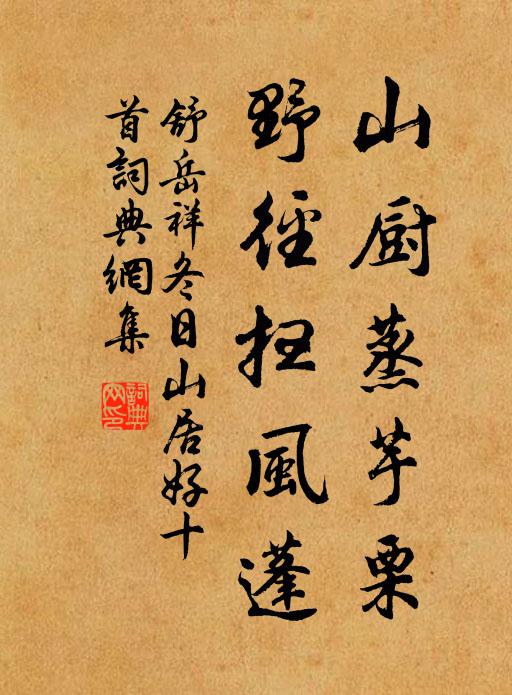 山厨蒸芋栗
野徑扫風蓬
舒岳祥冬日山居好十
首詞典網集
詞典
网印